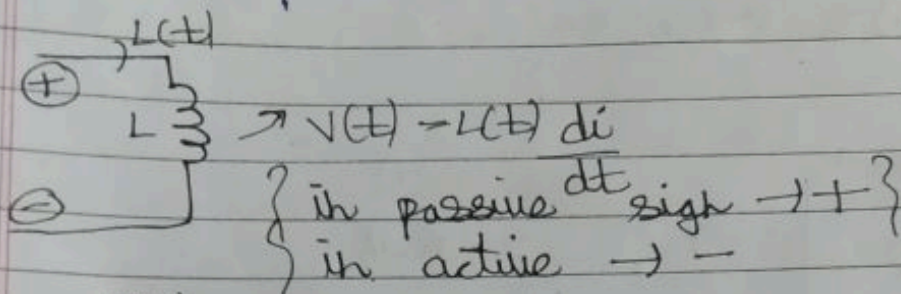 L(t)
+
L → V(t) - L(t) di/dt
- { in passive sign → + }
{ in active → -